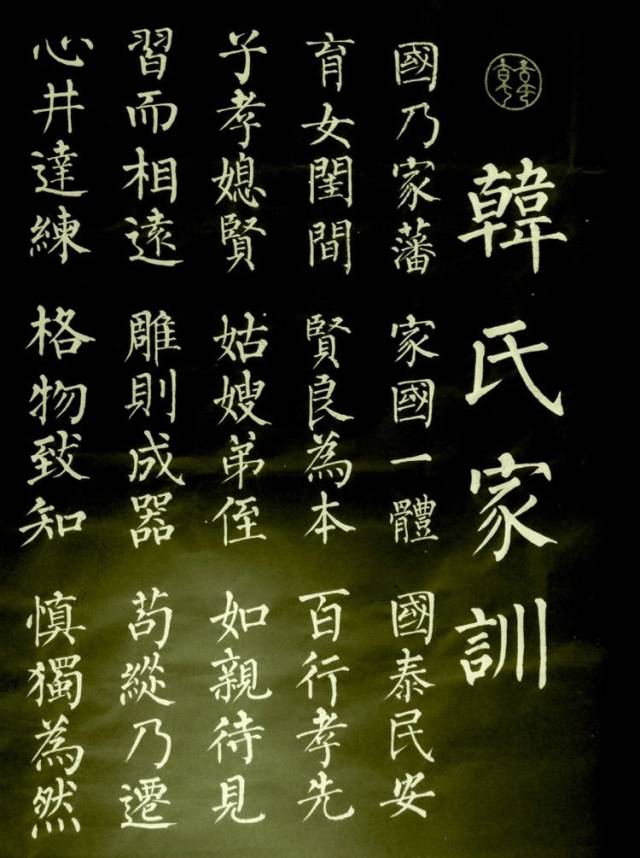 韓氏家訓
國乃家藩 家國一體 國泰民安
育女閨間 賢良為本 百行孝先
子孝媳賢 姑嫂弟侄 如親待見
習而相遠 雕則成器 苟縱乃遷
心井達練 格物致知 慎獨為然